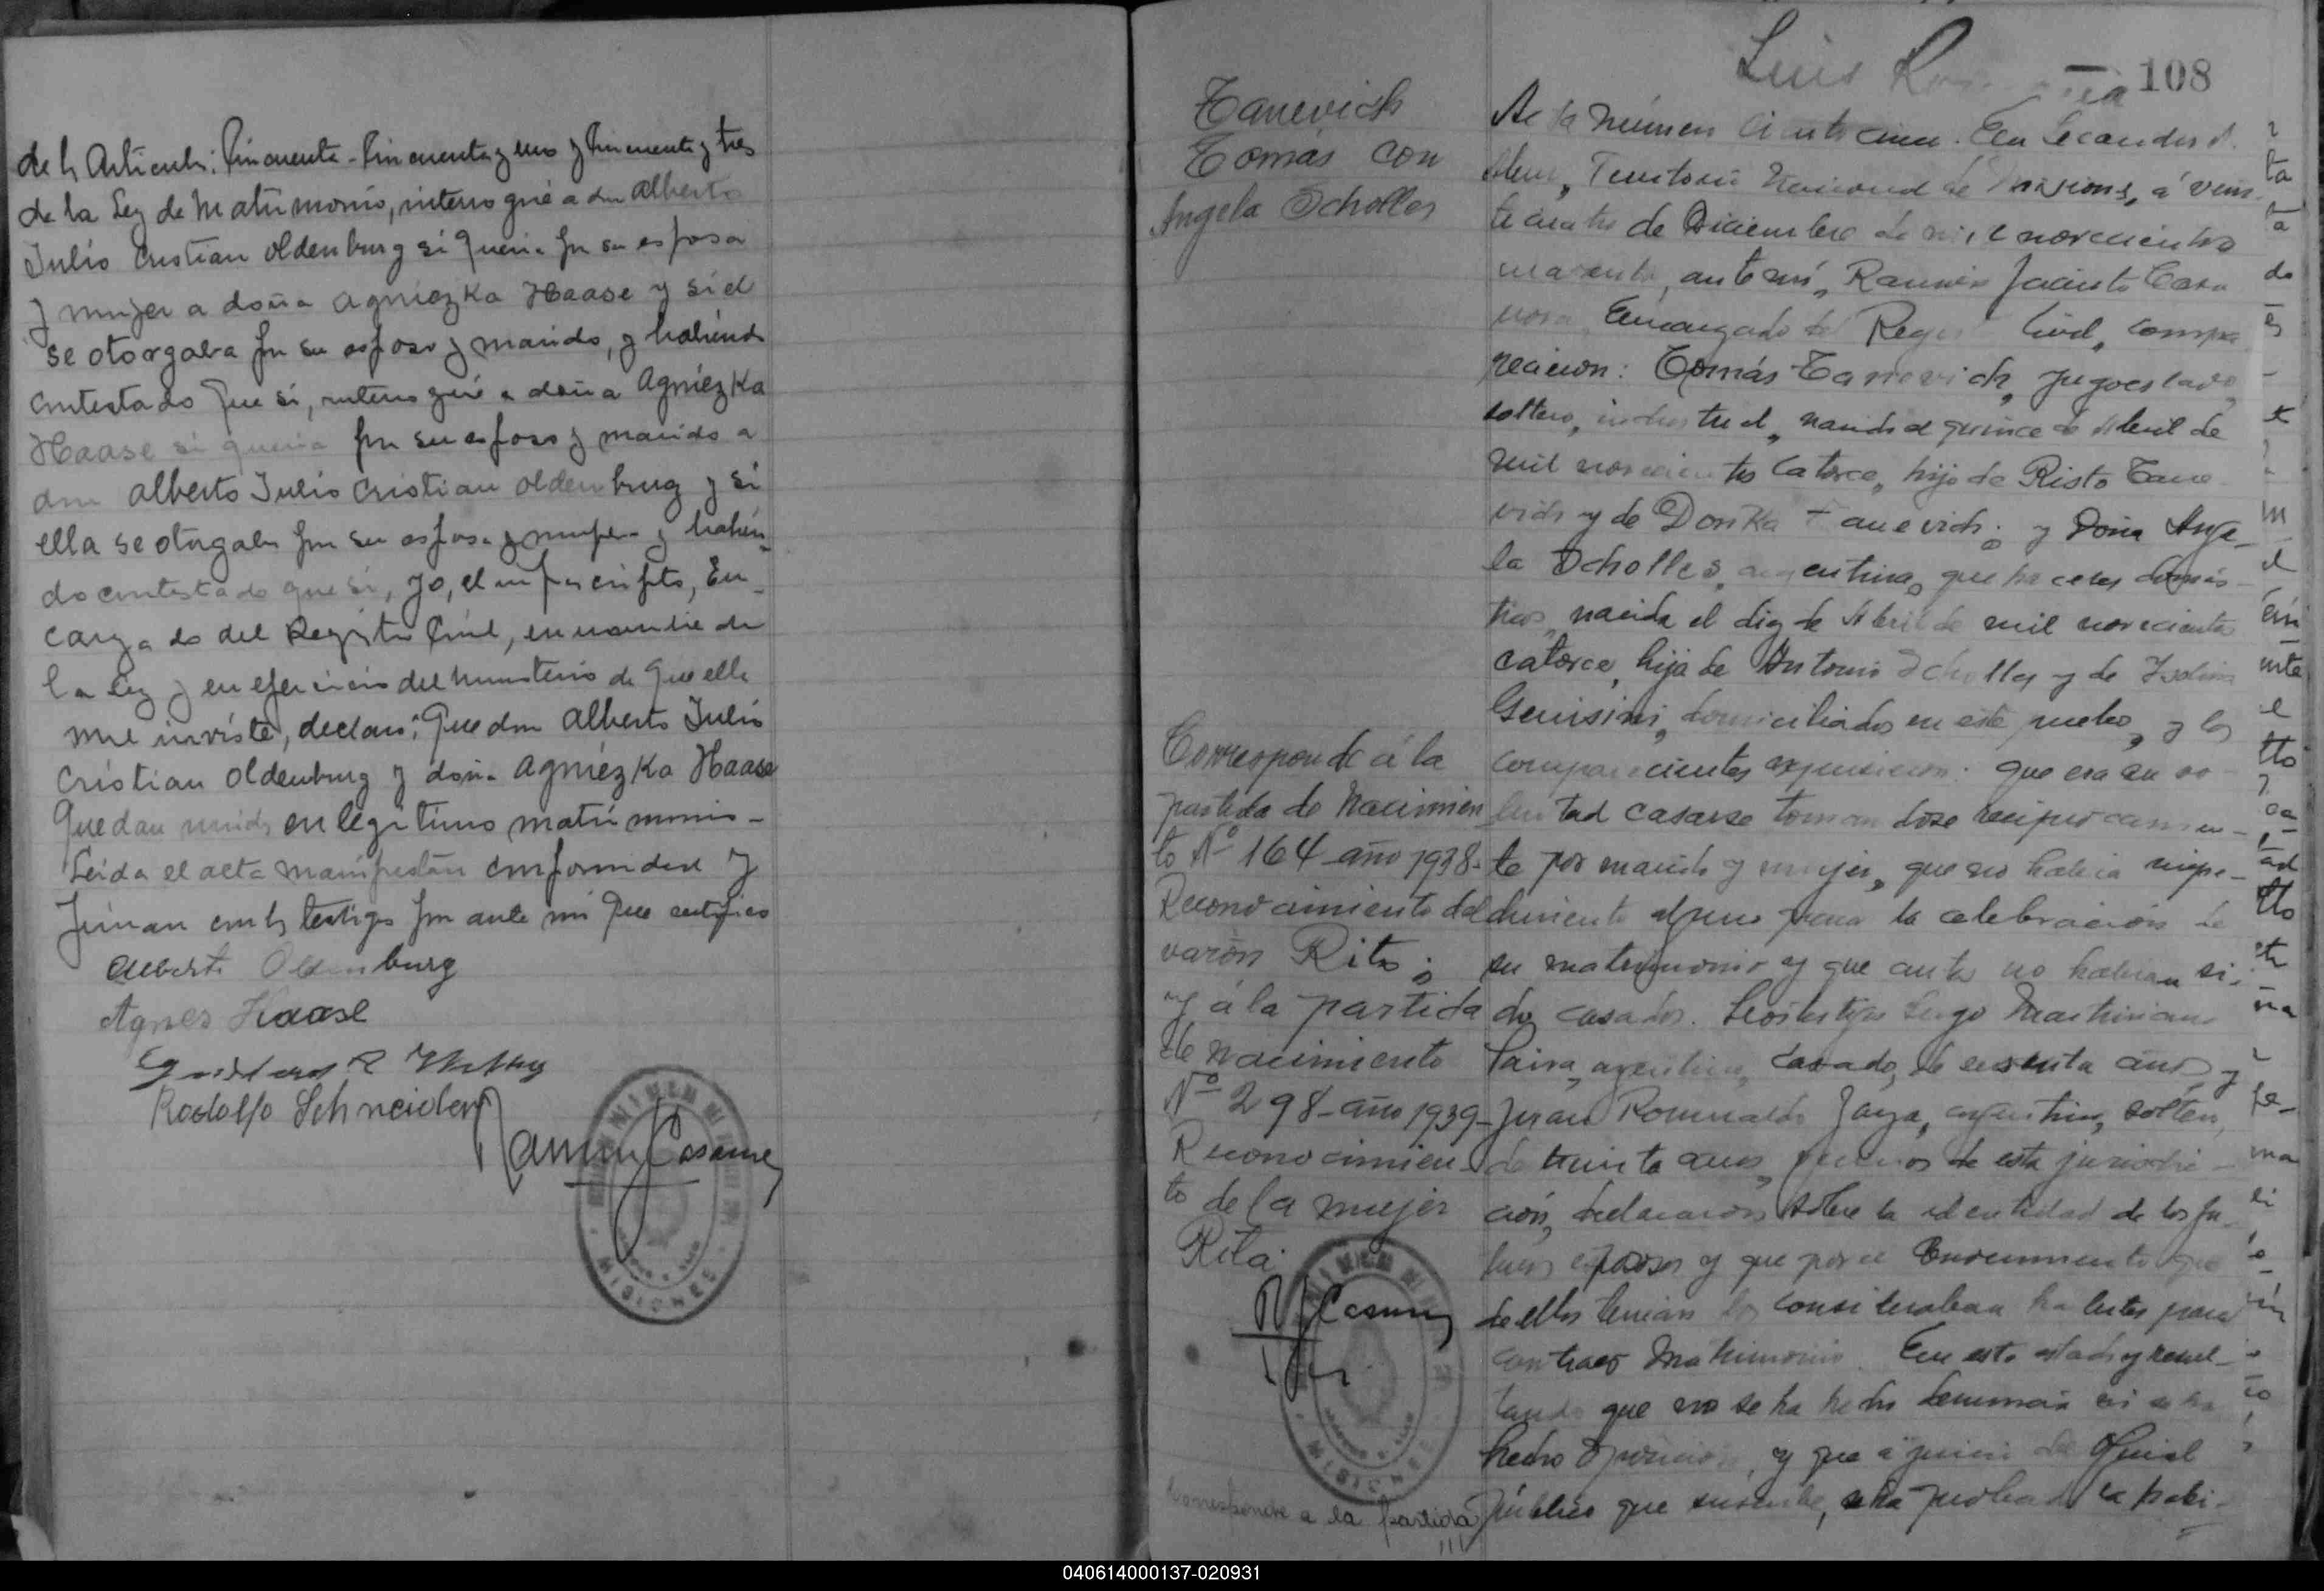 de los Articulos: Cincuenta - Cincuenta y uno y Cincuenta y tres
de la Ley de Matrimonio, interrogué a don Alberto
Julio Cristian Oldenburg si queria por su esposa
y mujer a doña Agniezka Haase y si él
se otorgaba por su esposo y marido, y habiendo
contestado que si, interrogué a doña Agniezka
Haase si queria por su esposo y marido a
don Alberto Julio Cristian Oldenburg y si
ella se otorgaba por su esposa y mujer y habien-
do contestado que si, yo, el infrascripto, En-
cargado del Registro Civil, en nombre de
la Ley y en ejercicio del ministerio de que ella
me inviste, declaro: Que don Alberto Julio
Cristian Oldenburg y doña Agniezka Haase
Quedan unidos en legitimo matrimonio -
Leida el acta manifiestan conformidad y
firman con los testigos por ante mi que certifico
Alberto Oldenburg
Agnes Haase
Rodolfo Schneider
Ramon J Casanova
MISIONES
Luis
108
Tanevich
Tomás con
Angela Scholles
Corresponde á la
partida de Nacimien
to Nº 164 año 1938-
Reconocimiento del
varón Rito;
y á la partida
de nacimiento
Nº 298- año 1939-
Reconocimien-
to de la mujer
Rita.
R J Casanova
MISIONES
Corresponde a la partida
Acta Número Ciento cinco. En Leandro N.
Alem, Territorio Nacional de Misiones, á vein-
te cuatro de Diciembre de mil novecientos
cuarenta, ante mí, Ramón Jacinto Casa
nova Encargado del Registro Civil, compa
recieron: Tomás Tanevich, yugoeslavo,
soltero, industrial, nacido el quince de Abril de
mil novecientos catorce, hijo de Risto Tane
vich y de Donka Tanevich; y Doña Ange-
la Scholles, argentina, quehaceres domés-
ticos, nacida el diez de Abril de mil novecientos
catorce, hija de Antonio Scholles y de Isolina
domiciliados en este pueblo, y los
comparecientes expusieron: que era su vo-
luntad casarse tomandose reciprocamen-
te por marido y mujer, que no habia impe-
dimento alguno para la celebración de
su matrimonio y que antes no habian si-
do casados. Los testigos Lugo Martiniano
Paiva, argentino, casado, de sesenta años y
Juan Romualdo argentino, soltero,
de treinta años, vecinos de esta jurisdic-
ción, declararon sobre la identidad de los fu-
turos esposos y que por el conocimiento que
de ellos tenian los consideraban habiles para
contraer Matrimonio. En este estado y resul-
tando que no se ha hecho denuncia ni se ha
hecho oposición, y que á juicio del Oficial
público que suscribe, se ha probado la habi-